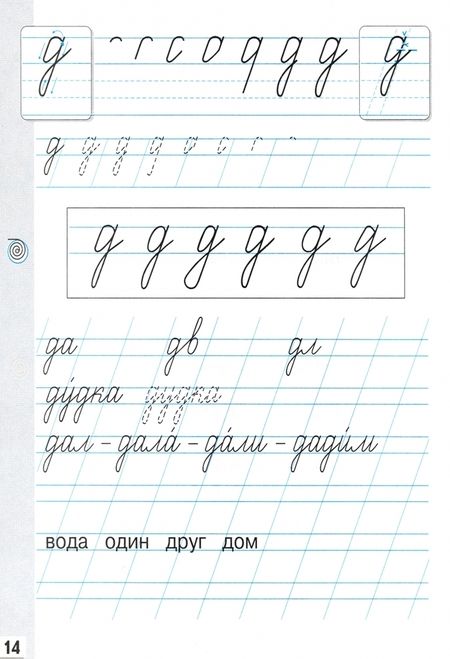 д д д д
д д д д д
д д д д д д
да дв дл
ду́дка дудка
дал – дала́ – да́ли – дади́м
вода один друг дом
14